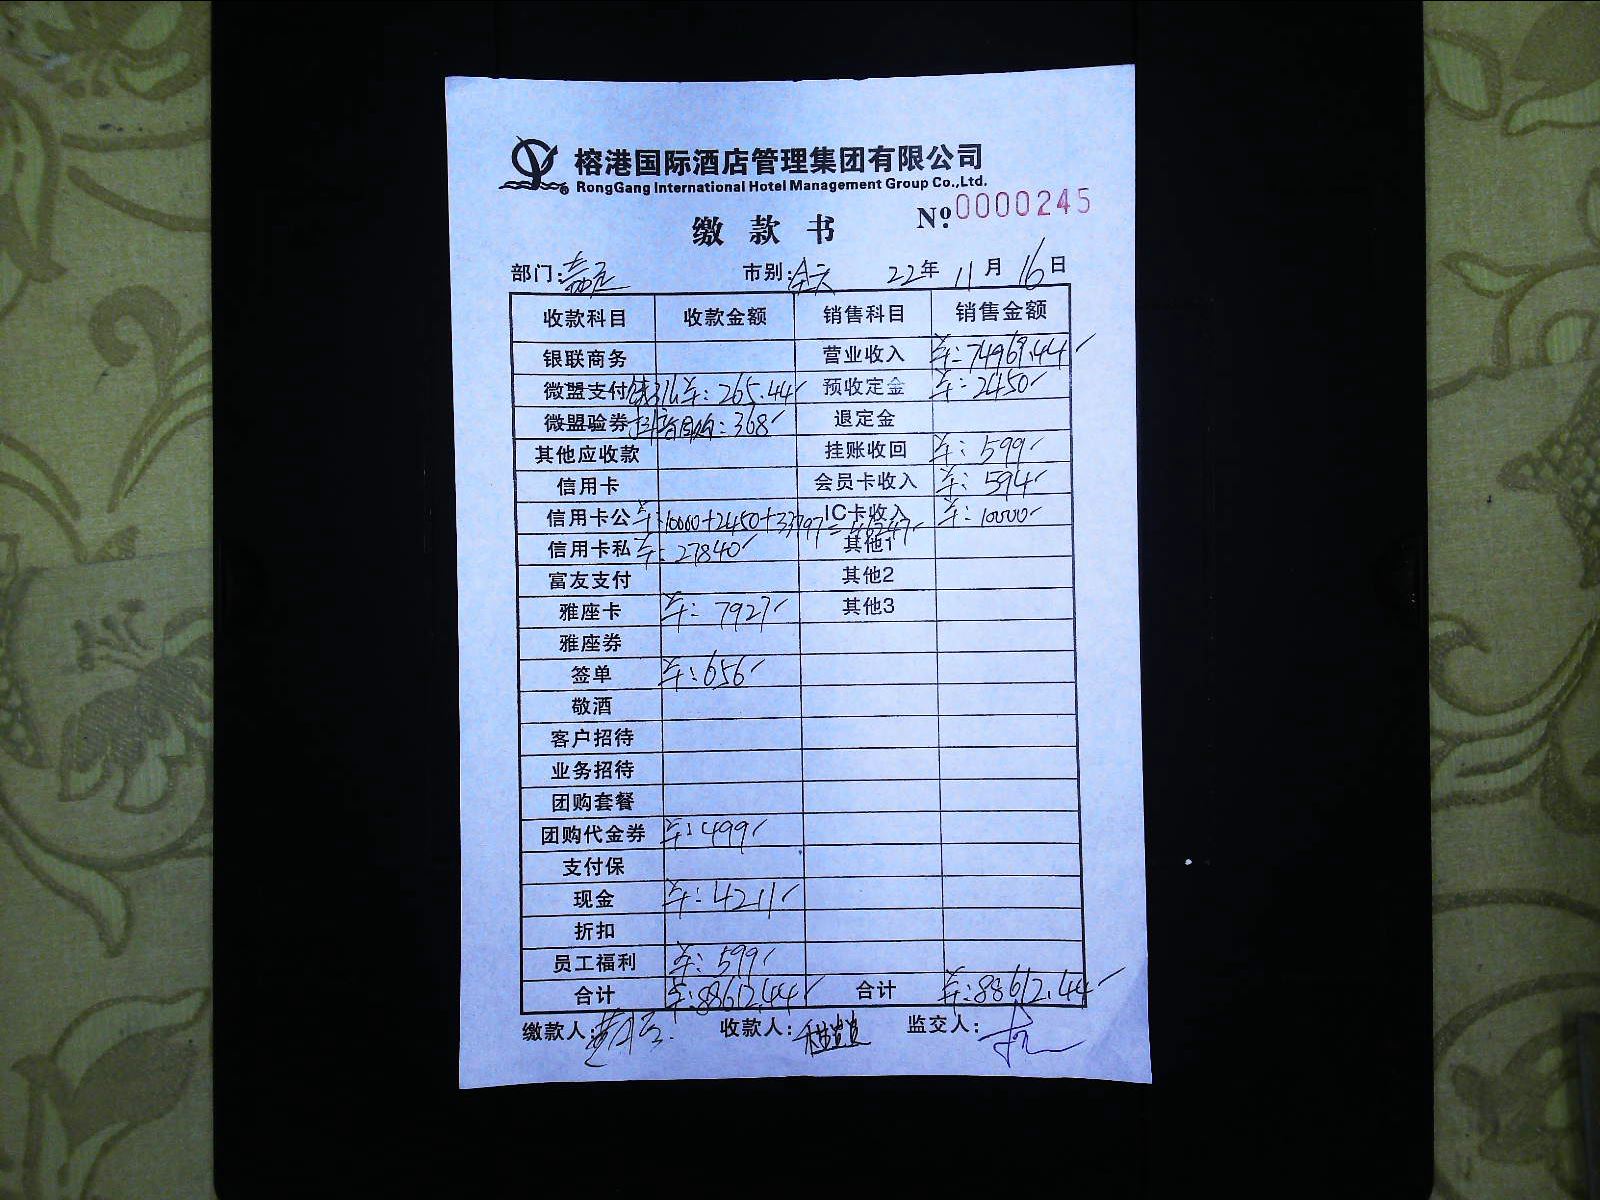 榕港国际酒店管理集团有限公司
RongGang International Hotel Management Group Co.,Ltd.
缴款书 Nº: 0000245
部门: 市别:全天 22年 11月 16日
收款科目 收款金额 销售科目 销售金额
银联商务 营业收入 ¥:74969.44
微盟支付 ¥:265.44 预收定金 ¥:2450
微盟验券 抖音团购:368 退定金
其他应收款 挂账收回 ¥:599
信用卡 会员卡收入 ¥:594
信用卡公 ¥:10000+2450+33797=46247 IC卡收入 ¥:10000
信用卡私 ¥:27840 其他1
富友支付 其他2
雅座卡 ¥:7927 其他3
雅座券
签单 ¥:656
敬酒
客户招待
业务招待
团购套餐
团购代金券 ¥:499
支付保
现金 ¥:4211
折扣
员工福利 ¥:599
合计 ¥:88612.44 合计 ¥:88612.44
缴款人: 收款人: 监交人: